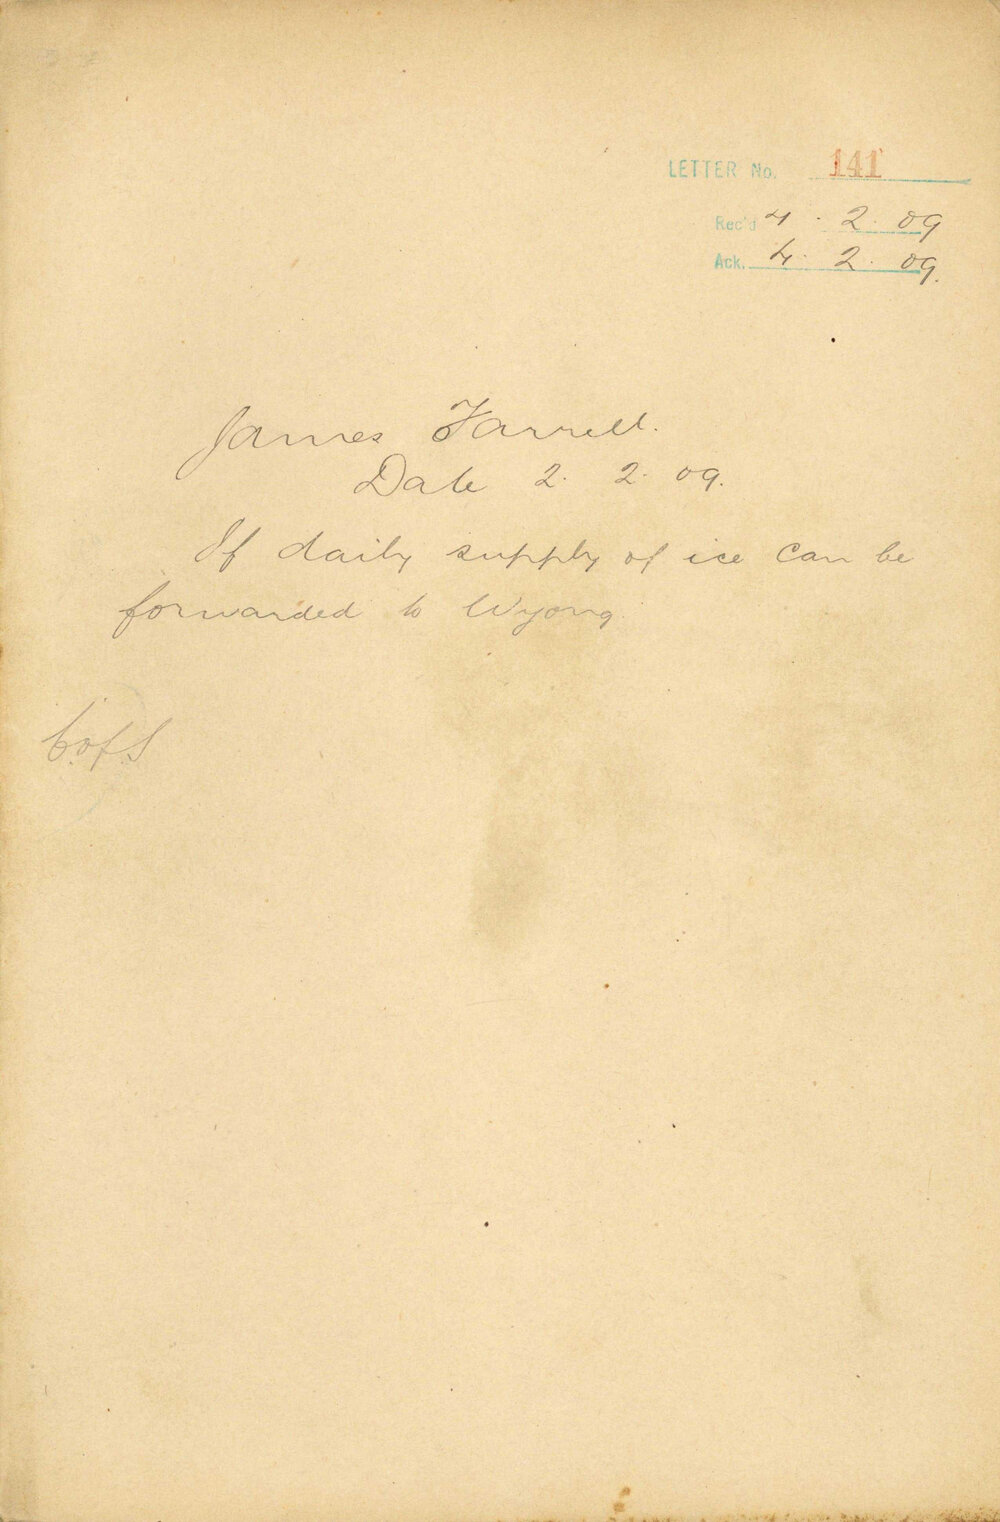 LETTER No. 141
Rec'd 4 . 2 . 09
Ack. 4 . 2 . 09.
James Farrell.
Date 2. 2. 09.
If daily supply of ice can be
forwarded to Wyong
C.of.S